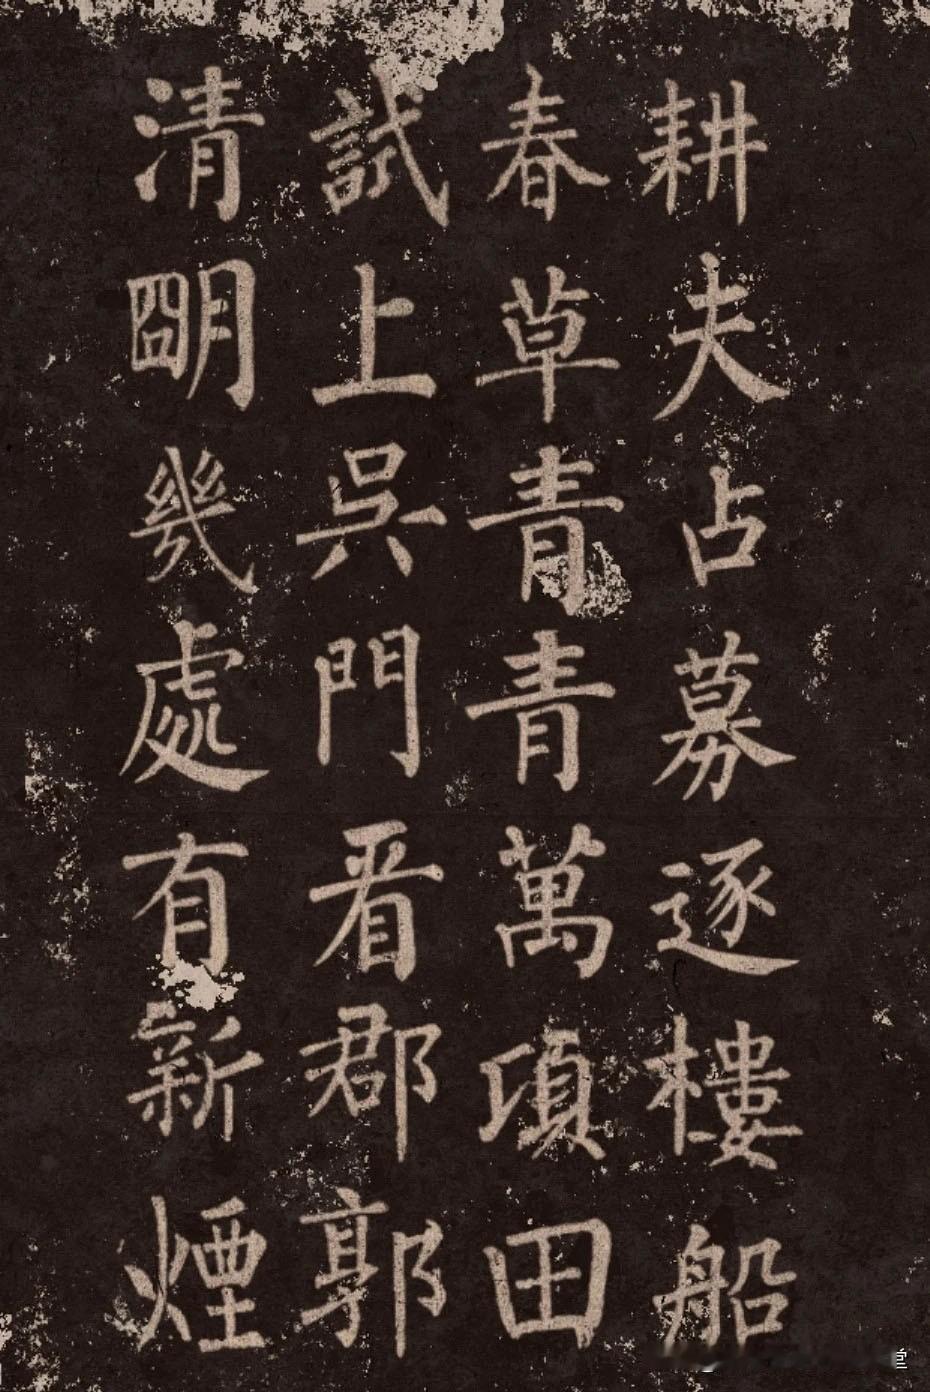 耕夫占募逐樓船
春草青青萬項田
試上吳門看郡郭
清朙幾處有新煙